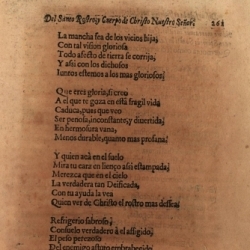 Del Santo Rostro, y Cuerpo de Christo Nuestro Señor. 261
La mancha sea de los vicios hija,
Con tal vision gloriosa
Todo afecto de tierra se corrija,
Y assi con los dichosos
Iuntos estemos a los mas gloriosos;
Que tres gloria, si creo
A el que te goza en està fragil vida
Caduca, pues que veo
Ser penosa, inconstante, y divertida,
En hermosura vana,
Menos durable, quanto mas profana.
Y quien atà en el suelo
Mira tu cara en lienço assi estampada;
Merezca que en el cielo
La verdadera tan Deificada,
Con tu ayuda la vea
Quien ver de Christo el rostro mas dessea;
Refrigerio sabroso;
Consuelo verdadero à el afligido,
El peso perezoso
Del enemigo astuto embrabecido